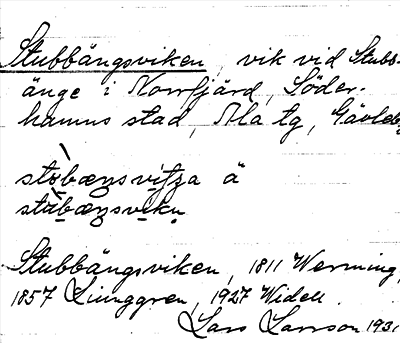 Stubbängsviken, vik vid Stubb-
änge i Norrfjärd, Söder-
hamns stad, Ala tg, Gävleb
stobæŋsvitʃa ä
stubæŋsvikṇ
Stubbängsviken, 1811 Werming,
1857 Ljunggren, 1927 Widell.
Lars Larsson 1931